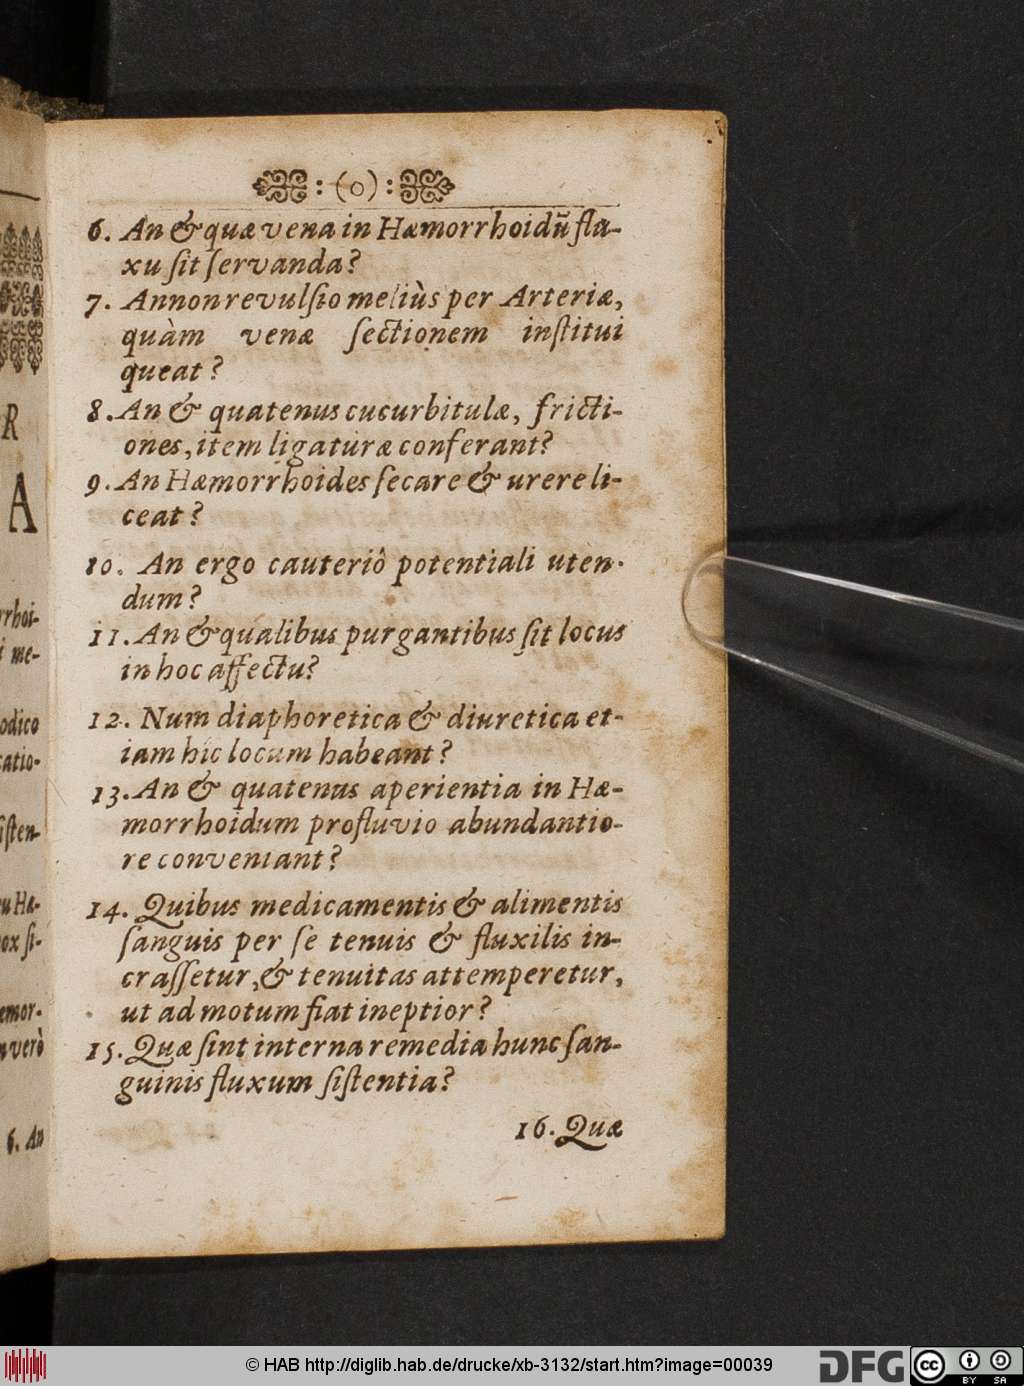 :(o):
6. An & quæ vena in Hæmorrhoidũ fla-
xu ſit ſervanda?
7. Annon revulſio meliùs per Arteriæ,
quàm venæ ſectionem inſtitui
queat?
8. An & quatenus cucurbitulæ, fricti-
ones, item ligaturæ conferant?
9. An Hæmorrhoides ſecare & urere li-
ceat?
10. An ergo cauteriô potentiali uten-
dum?
11. An & qualibus purgantibus ſit locus
in hoc affectu?
12. Num diaphoretica & diuretica et-
iam hic locum habeant?
13. An & quatenus aperientia in Hæ-
morrhoidum profluvio abundantio-
re conveniant?
14. Quibus medicamentis & alimentis
ſanguis per ſe tenuis & fluxilis in-
craſſetur, & tenuitas attemperetur,
ut ad motum fiat ineptior?
15. Quæ ſint interna remedia hunc ſan-
guinis fluxum ſiſtentia?
16. Quæ
R
A
rrhoi-
i me-
odico
catio-
ſiſten-
u Hæ-
ox ſi-
emor-
verò
6. An
© HAB http://diglib.hab.de/drucke/xb-3132/start.htm?image=00039
DFG
cc BY SA